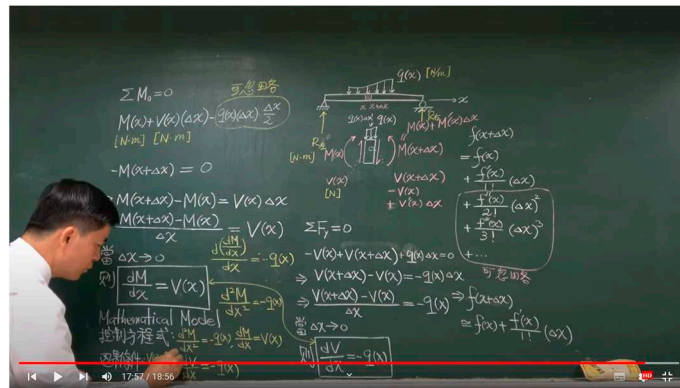 ΣM₀=0
可忽略
M(x)+V(x)(Δx)-q(x)(Δx) Δx/2
[N·m] [N·m]
-M(x+Δx) = 0
M(x+Δx)-M(x) = V(x)Δx
M(x+Δx)-M(x) / Δx = V(x)
當 Δx→0
則 dM/dx = V(x)
d(dM/dx)/dx = -q(x)
d²M/dx² = -q(x)
Mathematical Model
控制方程式: d²M/dx² = -q(x) dM/dx = V(x)
= -q(x)
q(x) [N/m]
x
x x+Δx
q(x)Δx q(x)
M(x)+M'(x)Δx
[N·m] M(x) M(x+Δx)
V(x)
[N]
V(x+Δx)
=V(x)
+V'(x)Δx
ΣFy=0
-V(x)+V(x+Δx)+q(x)Δx=0
⇒ V(x+Δx)-V(x)=-q(x)Δx
⇒ V(x+Δx)-V(x) / Δx = -q(x)
當 Δx→0
則 dV/dx = -q(x)
f(x+Δx)
= f(x)
+ f'(x)/1! (Δx)
+ f''(x)/2! (Δx)²
+ f'''(x)/3! (Δx)³
+ ...
可忽略
⇒ f(x+Δx)
≃ f(x)+ f'(x)/1! (Δx)
17:57 / 18:56
HD